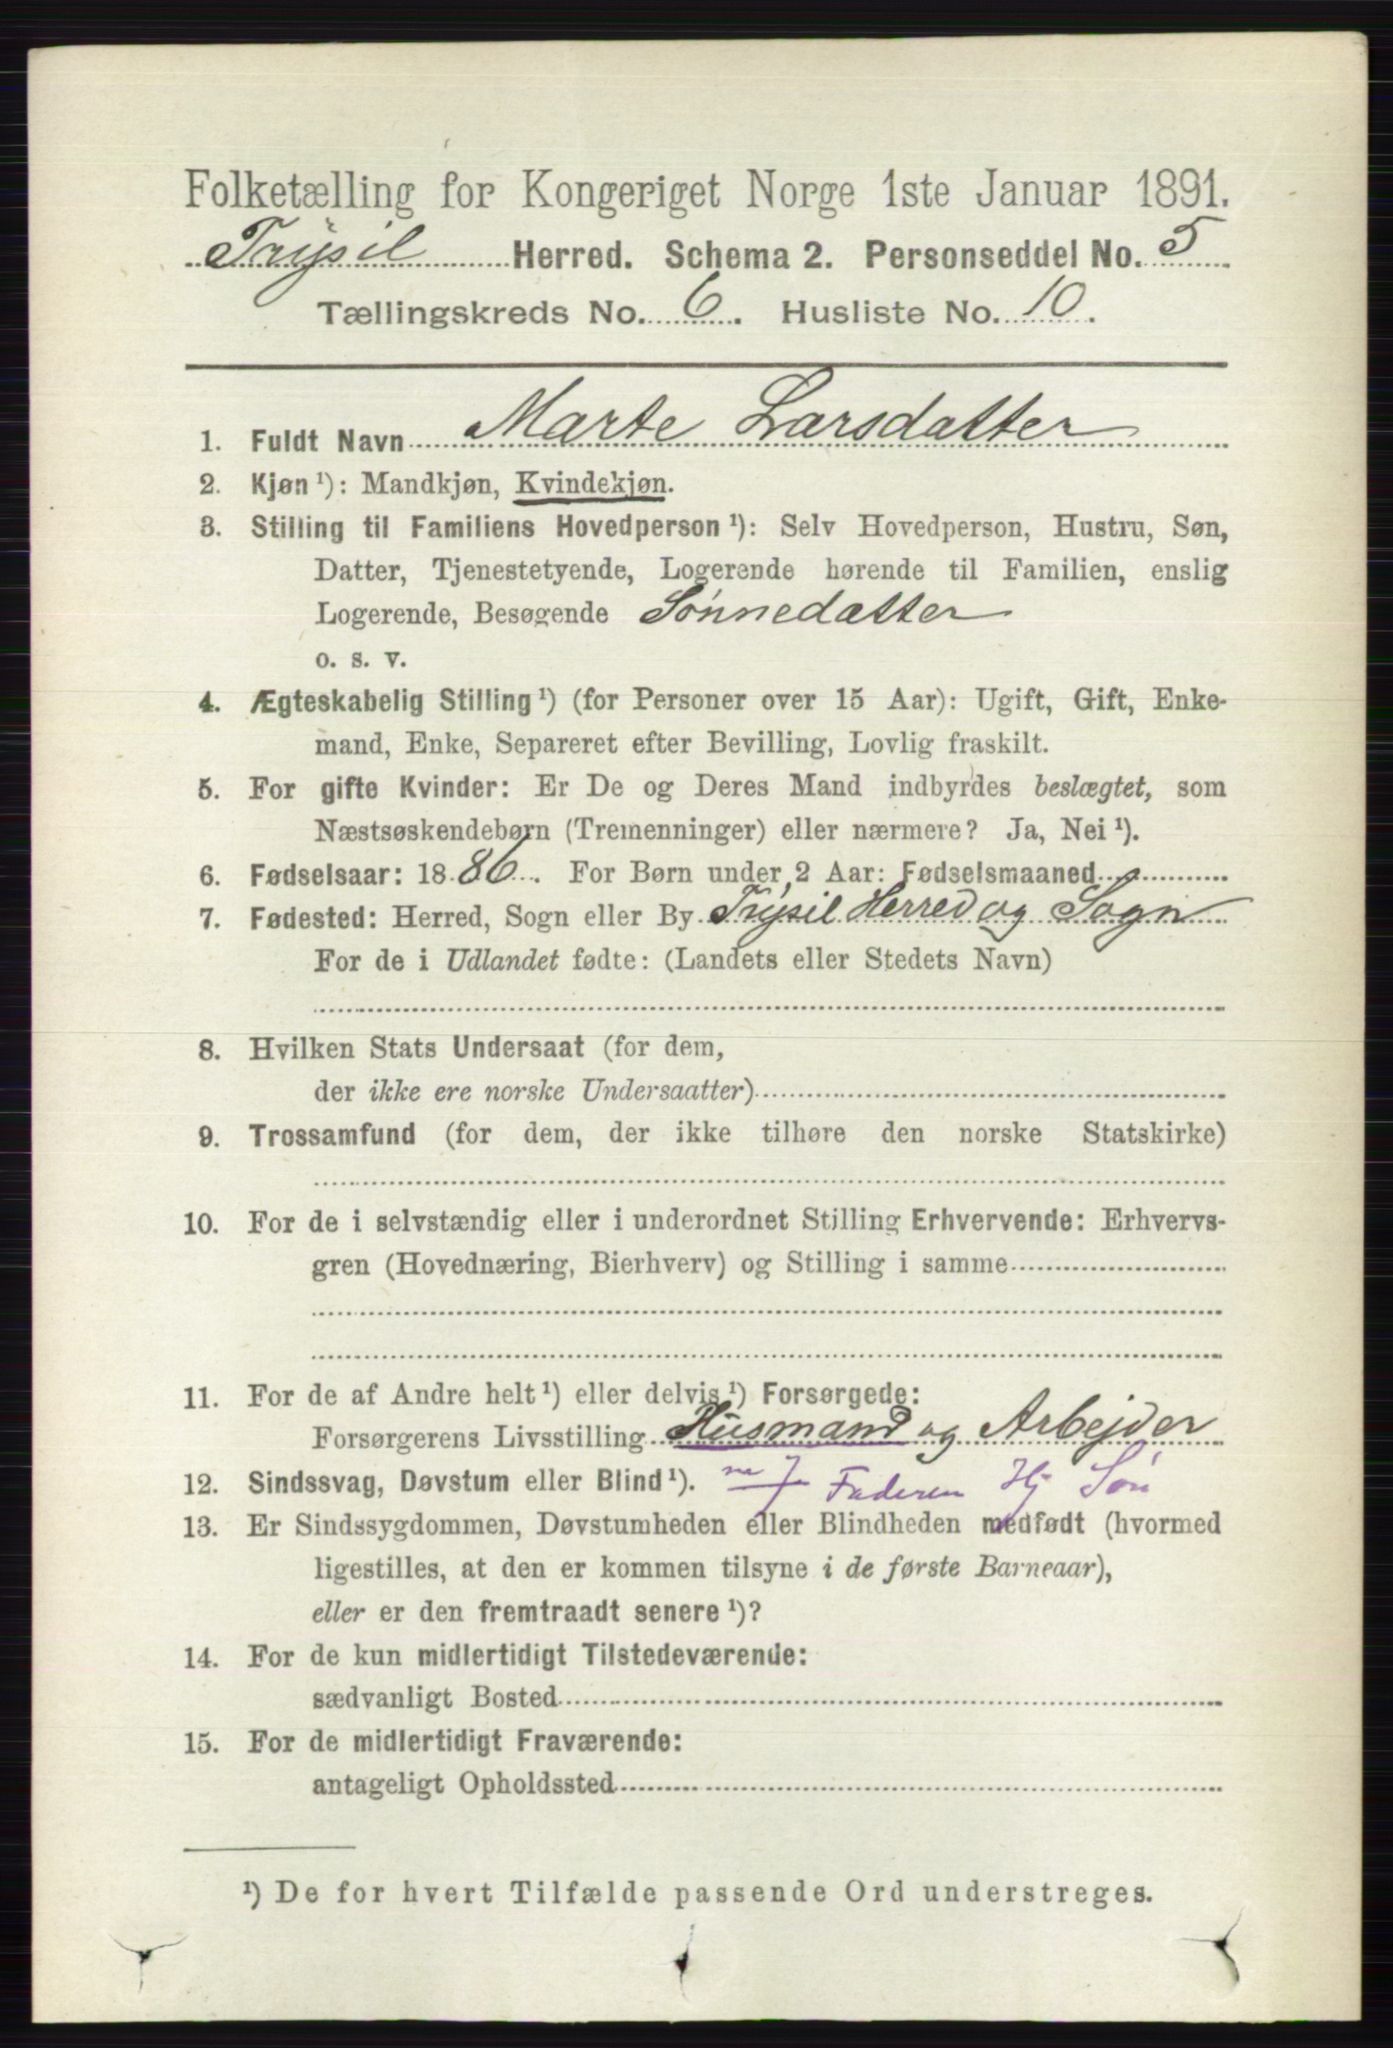 Folketælling for Kongeriget Norge 1ste Januar 1891.
Trysil Herred. Schema 2. Personseddel No. 5
Tællingskreds No. 6. Husliste No. 10.
1. Fuldt Navn Marte Larsdatter
2. Kjøn ¹): Mandkjøn, Kvindekjøn.
3. Stilling til Familiens Hovedperson ¹): Selv Hovedperson, Hustru, Søn,
Datter, Tjenestetyende, Logerende hørende til Familien, enslig
Logerende, Besøgende Sønnedatter
o. s. v.
4. Ægteskabelig Stilling ¹) (for Personer over 15 Aar): Ugift, Gift, Enke-
mand, Enke, Separeret efter Bevilling, Lovlig fraskilt.
5. For gifte Kvinder: Er De og Deres Mand indbyrdes beslægtet, som
Næstsøskendebørn (Tremenninger) eller nærmere? Ja, Nei ¹).
6. Fødselsaar: 1886. For Børn under 2 Aar: Fødselsmaaned
7. Fødested: Herred, Sogn eller By Trysil Herred og Sogn
For de i Udlandet fødte: (Landets eller Stedets Navn)
8. Hvilken Stats Undersaat (for dem,
der ikke ere norske Undersaatter)
9. Trossamfund (for dem, der ikke tilhøre den norske Statskirke)
10. For de i selvstændig eller i underordnet Stilling Erhvervende: Erhvervs-
gren (Hovednæring, Bierhverv) og Stilling i samme
11. For de af Andre helt ¹) eller delvis ¹) Forsørgede:
Forsørgerens Livsstilling Husmand og Arbejder
12. Sindssvag, Døvstum eller Blind ¹). Faderen Hj Søn
13. Er Sindssygdommen, Døvstumheden eller Blindheden medfødt (hvormed
ligestilles, at den er kommen tilsyne i de første Barneaar),
eller er den fremtraadt senere ¹)?
14. For de kun midlertidigt Tilstedeværende:
sædvanligt Bosted
15. For de midlertidigt Fraværende:
antageligt Opholdssted
¹) De for hvert Tilfælde passende Ord understreges.